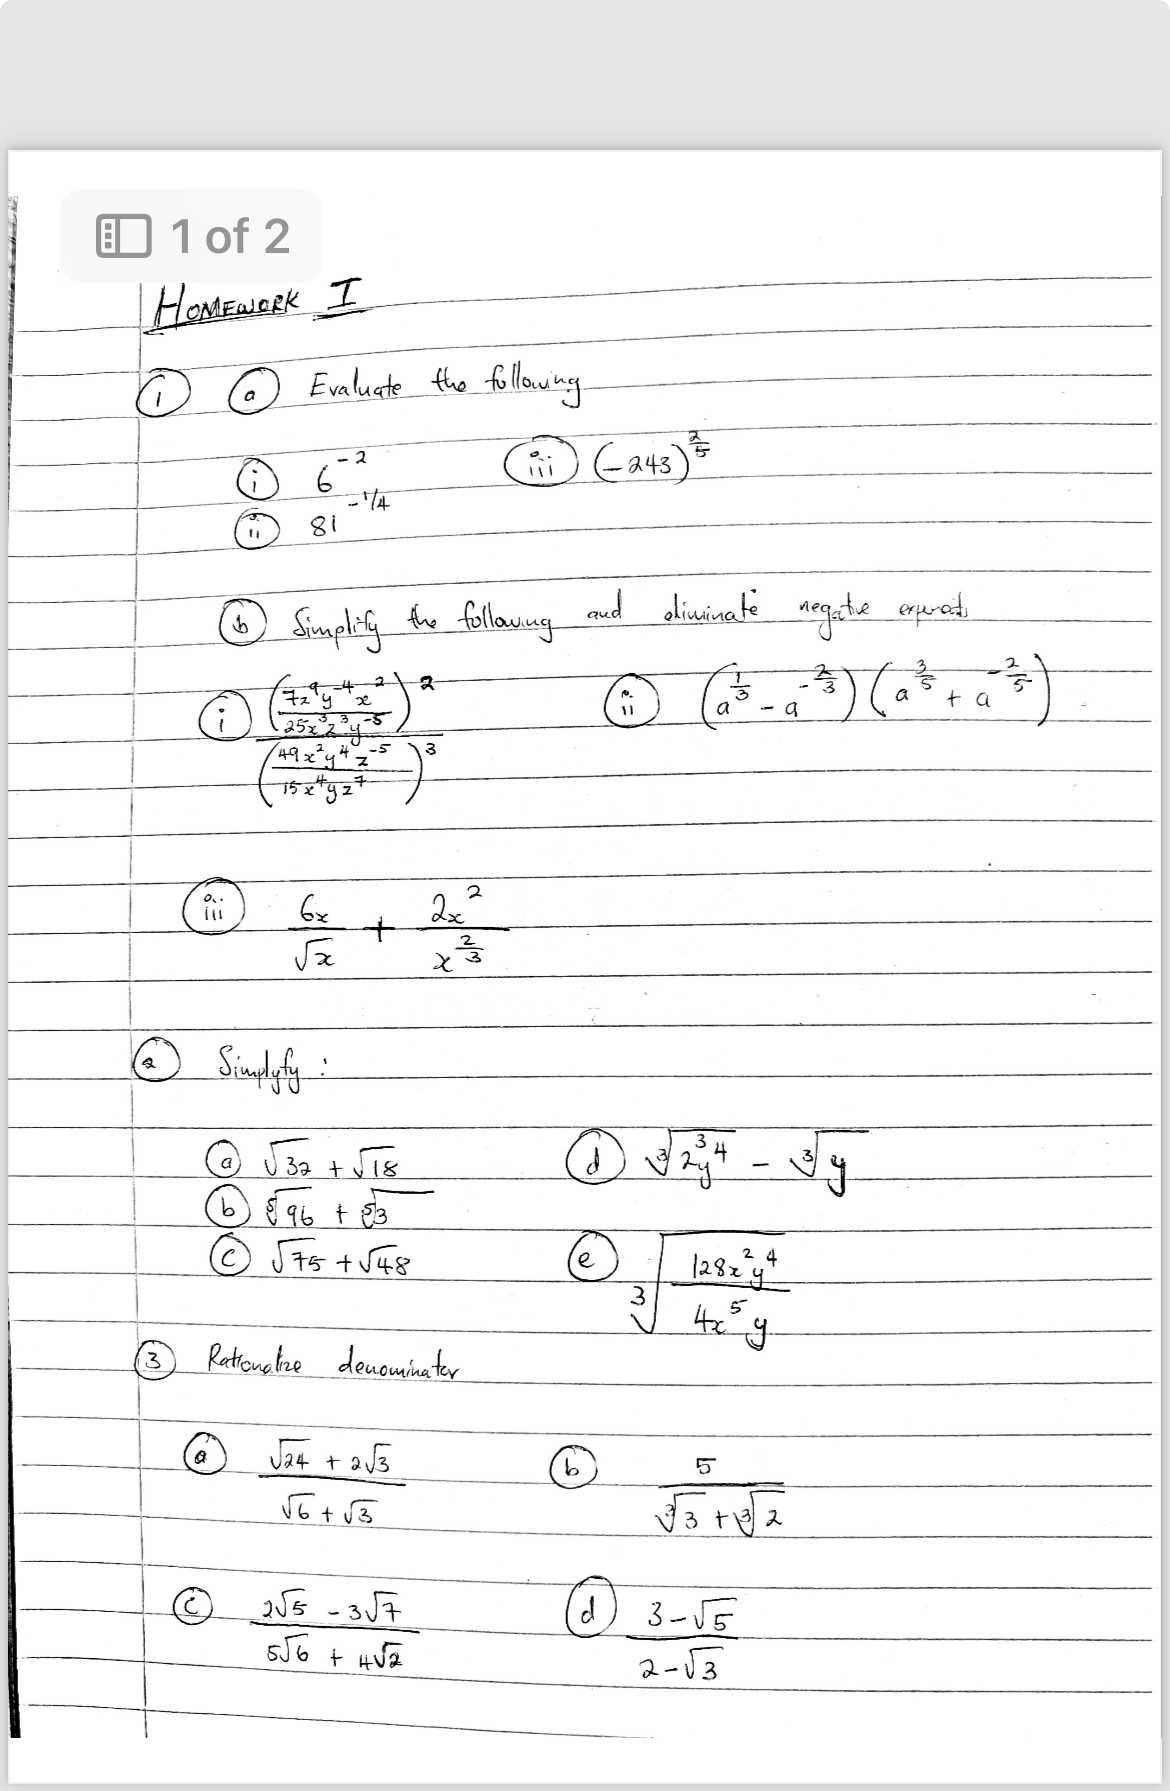 1 of 2
HOMEWORK I
① ⓐ Evaluate the following
ⓘ 6^{-2} ⓘⓘⓘ (-243)^{2/5}
ⓘⓘ 81^{-1/4}
ⓑ Simplify the following and eliminate negative exponents
ⓘ \frac{(\frac{7z^9y^{-4}x^2}{25x^3z^3y^{-5}})^2}{(\frac{49x^2y^4z^{-5}}{15x^4yz^7})^3} ⓘⓘ (a^{1/3} - a^{-2/3})(a^{3/5} + a^{-2/5})
ⓘⓘⓘ \frac{6x}{√x} + \frac{2x^2}{x^{2/3}}
② Simplyfy :
ⓐ √32 + √18 ⓓ ∛(2^3y^4) - ∛y
ⓑ ⁵√96 + ⁵√3
ⓒ √75 + √48 ⓔ ∛(\frac{128x^2y^4}{4x^5y})
③ Rationalize denominator
ⓐ \frac{√24 + 2√3}{√6 + √3} ⓑ \frac{5}{∛3 + ∛2}
ⓒ \frac{2√5 - 3√7}{5√6 + 4√2} ⓓ \frac{3-√5}{2-√3}